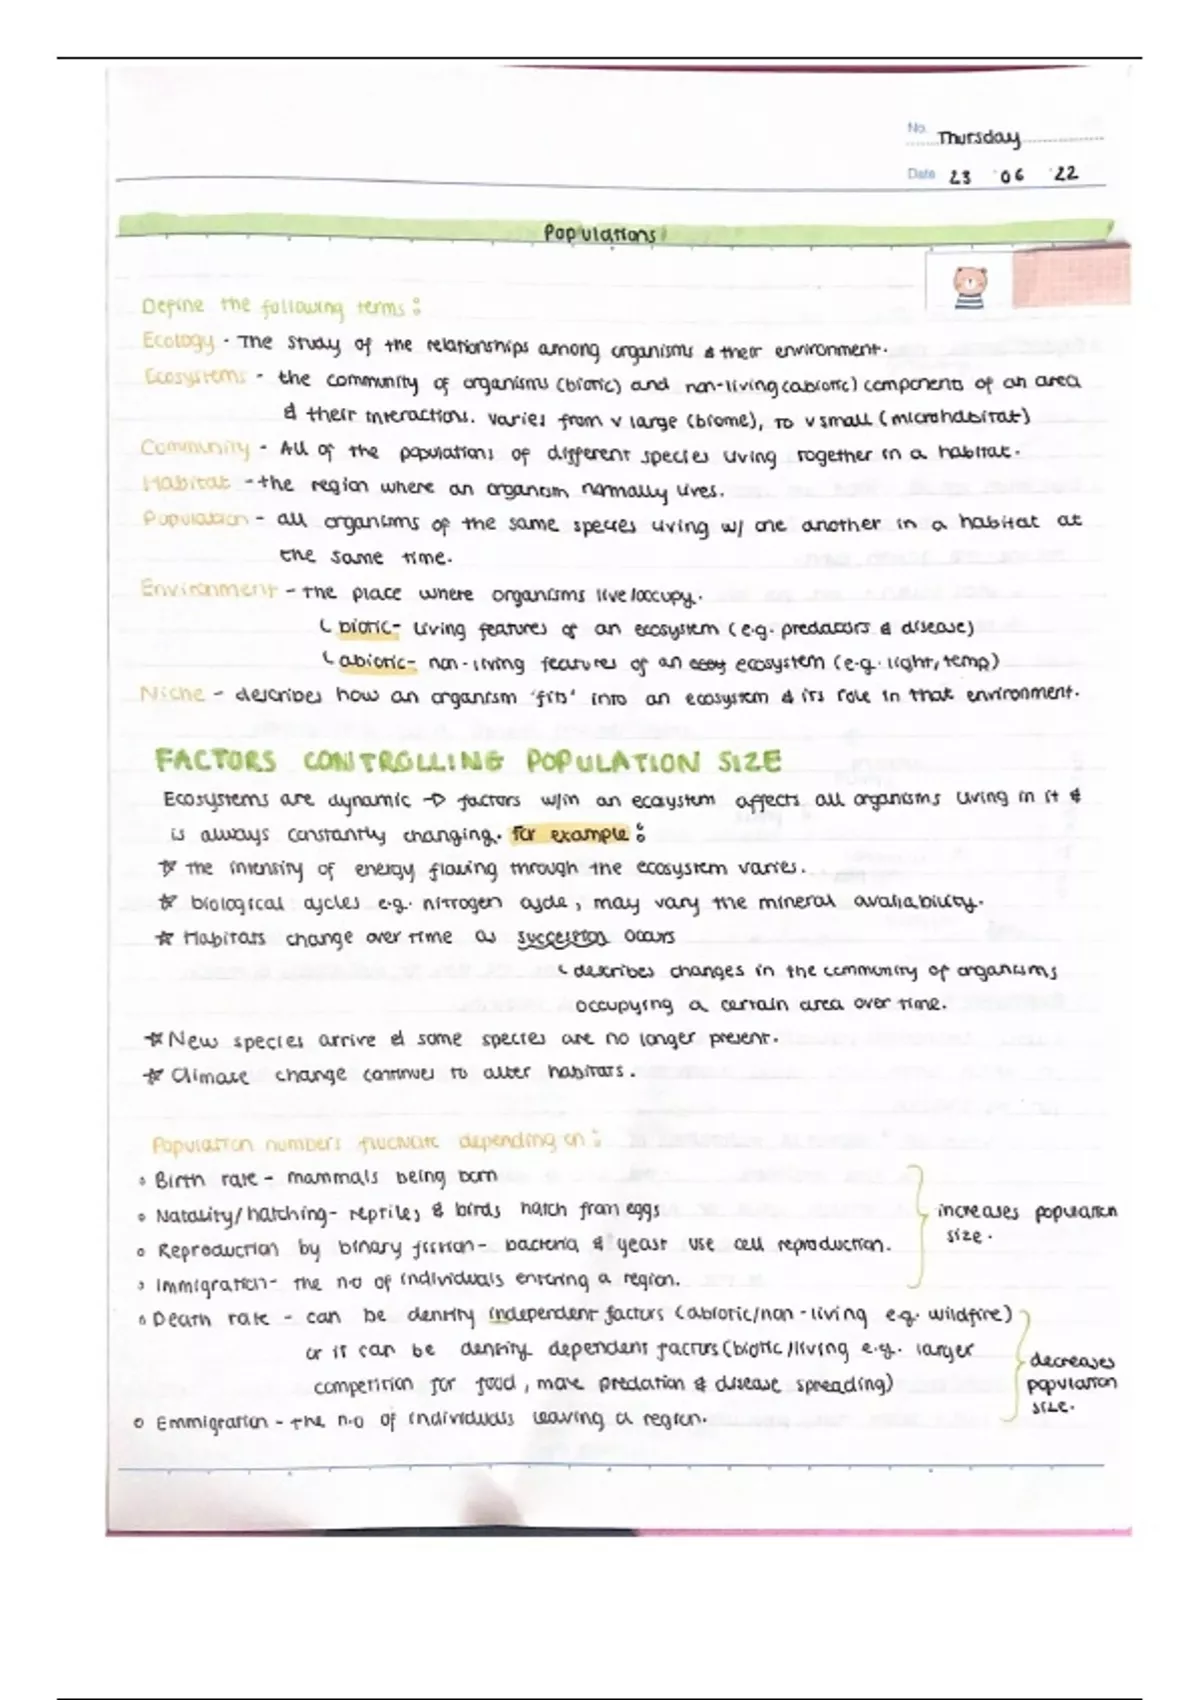 No. Thursday
Date 23 06 22
Populations
Define the following terms:
Ecology - The study of the relationships among organisms & their environment.
Ecosystems - the community of organisms (biotic) and non-living (abiotic) components of an area
& their interactions. Varies from v large (biome), to v small (microhabitat)
Community - All of the populations of different species living together in a habitat.
Habitat - the region where an organism normally lives.
Population - all organisms of the same species living w/ one another in a habitat at
the same time.
Environment - the place where organisms live/occupy.
biotic - living features of an ecosystem (e.g. predators & disease)
abiotic - non-living features of an ecosystem (e.g. light, temp)
Niche - describes how an organism 'fits' into an ecosystem & its role in that environment.
FACTORS CONTROLLING POPULATION SIZE
Ecosystems are dynamic → factors w/in an ecosystem affects all organisms living in it &
is always constantly changing. For example:
☆ The intensity of energy flowing through the ecosystem varies.
☆ biological cycles e.g. nitrogen cycle, may vary the mineral availability.
☆ Habitats change over time as succession occurs
describes changes in the community of organisms
occupying a certain area over time.
☆ New species arrive & some species are no longer present.
☆ Climate change continues to alter habitats.
Population numbers fluctuate depending on:
◦ Birth rate - mammals being born
◦ Natality/hatching - reptiles & birds hatch from eggs
◦ Reproduction by binary fission - bacteria & yeast use cell reproduction.
◦ Immigration - the no of individuals entering a region.
increases population
size.
◦ Death rate - can be density independent factors (abiotic/non-living e.g. wildfire)
or it can be density dependent factors (biotic/living e.g. larger
competition for food, more predation & disease spreading)
◦ Emmigration - the n.o of individuals leaving a region.
decreases
population
size.